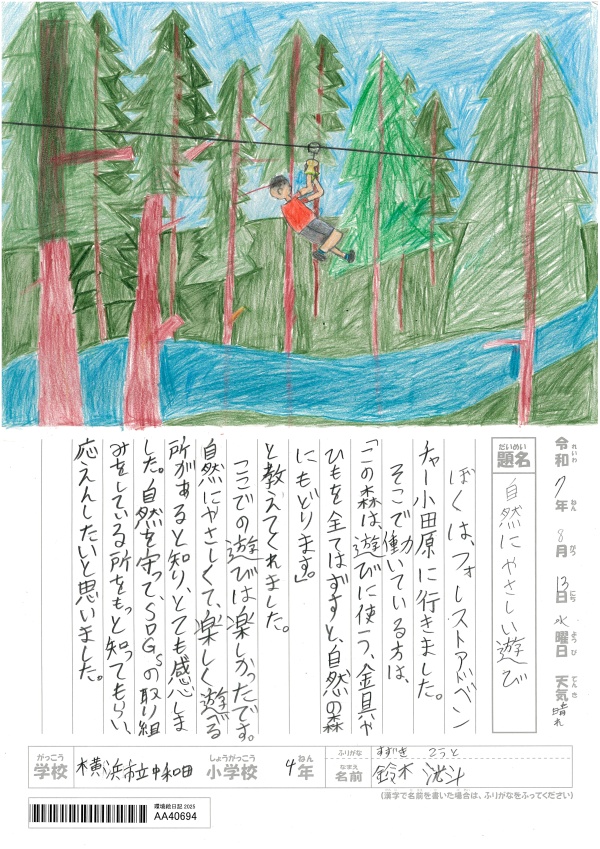 令和7年8月13日水曜日 天気晴れ
れいわ ねん がつ にち ようび てんき
だいめい
題名 自然にやさしい遊び
ぼくは、フォレストアドベン
チャー小田原に行きました。
そこで働いている方は、
「この森は、遊びに使う、金具や
ひもを全てはずすと、自然の森
にもどります」
と教えてくれました。
ここでの遊びは楽しかったです。
自然にやさしくて、楽しく遊べる
所があると知り、とても感心しま
した。自然を守って、SDGsの取り組
みをしている所をもっと知ってもらい、
応えんしたいと思いました。
がっこう しょうがっこう ねん
学校 横浜市立中和田小学校 4年
ふりがな すずき こうと
なまえ
名前 鈴木 洸斗
(漢字で名前を書いた場合は、ふりがなをふってください)
環境絵日記 2025
AA40694